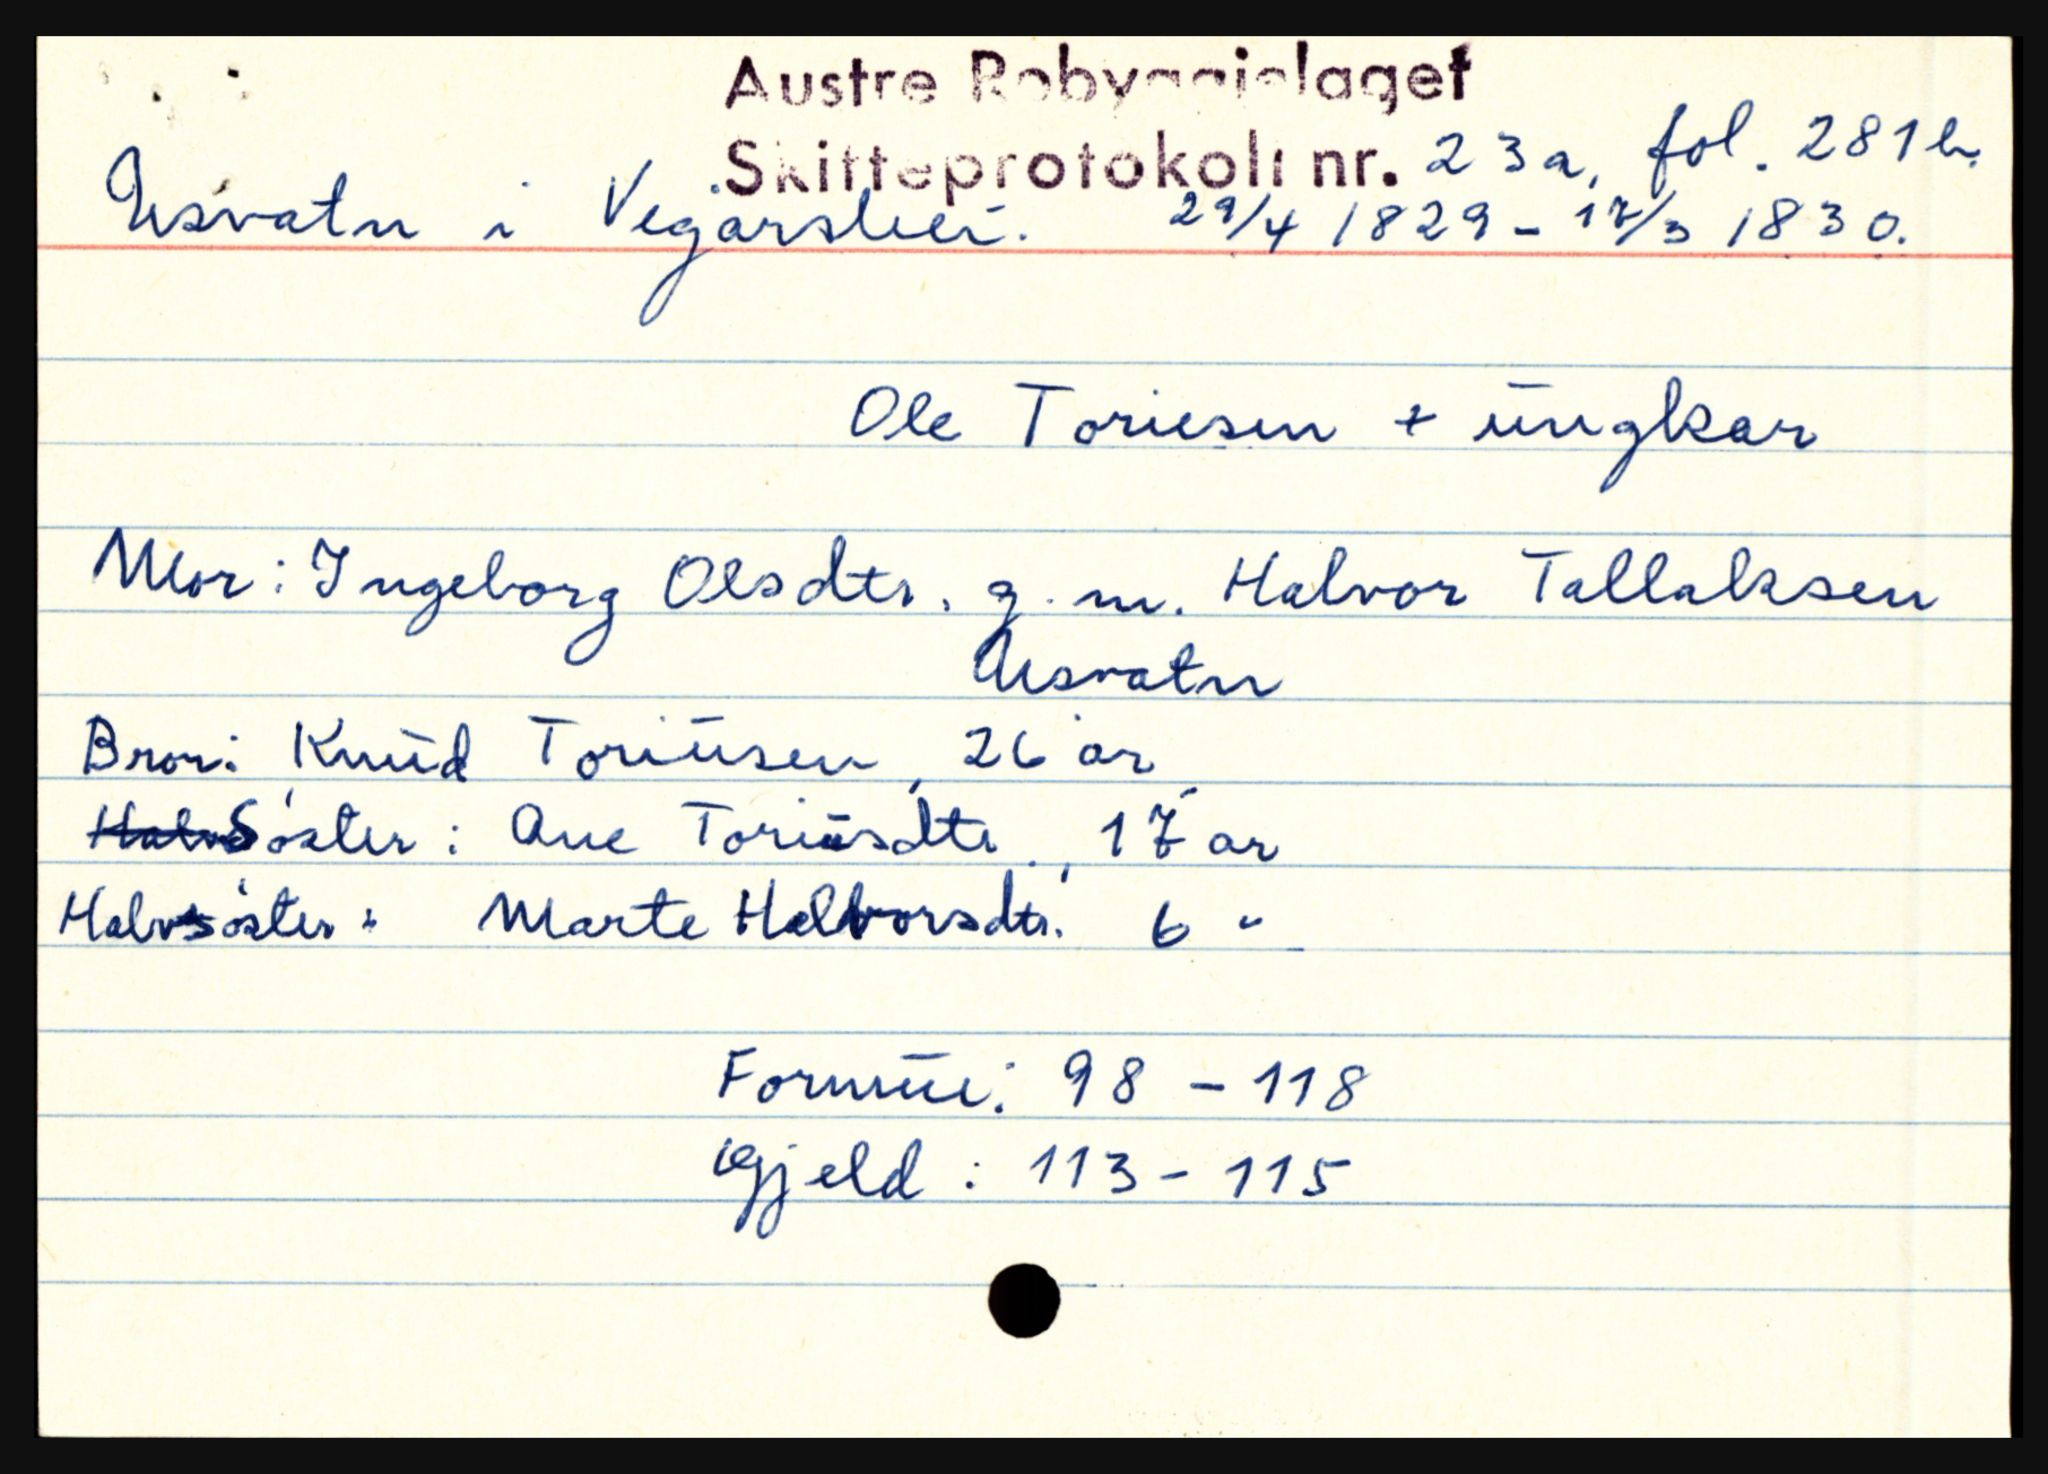 Austre Robyggjelaget
Skifteprotokoll nr. 23a, fol. 281b.
Usvatn i Vegårshei. 29/4 1829 - 17/3 1830.
Ole Toriesen + ungkar
Mor: Ingeborg Olsdtr. g. m. Halvor Tallaksen
Usvatn
Bror: Knud Toriusen, 26 år
Söster: Ane Toriusdtr., 17 år
Halvsöster: Marte Halvorsdtr. 6 "
Formue: 98 - 118
Gjeld: 113 - 115